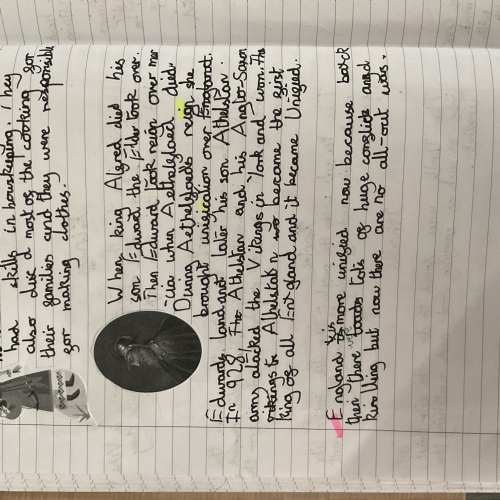 had skills in houskeeping. They
also did most of the cooking for
their families and they were responsible
for making clothes.
When king Alfred died his
son Edward the Elder took over.
Then Edward took reign over mer
-cia when Aethelflaed died.
During Aethelflaeds reign she
brought unification over
Edwards land and later his son Athelstan.
In 928, Athelstan and his Anglo-Saxon
army attacked the Vikings in York and won. The
vikings Athelstan became the first
king of all England and it became Unified.
England is more unified now because back
then there were loads of huge conflicts and
killing but now there are no all-out wars.